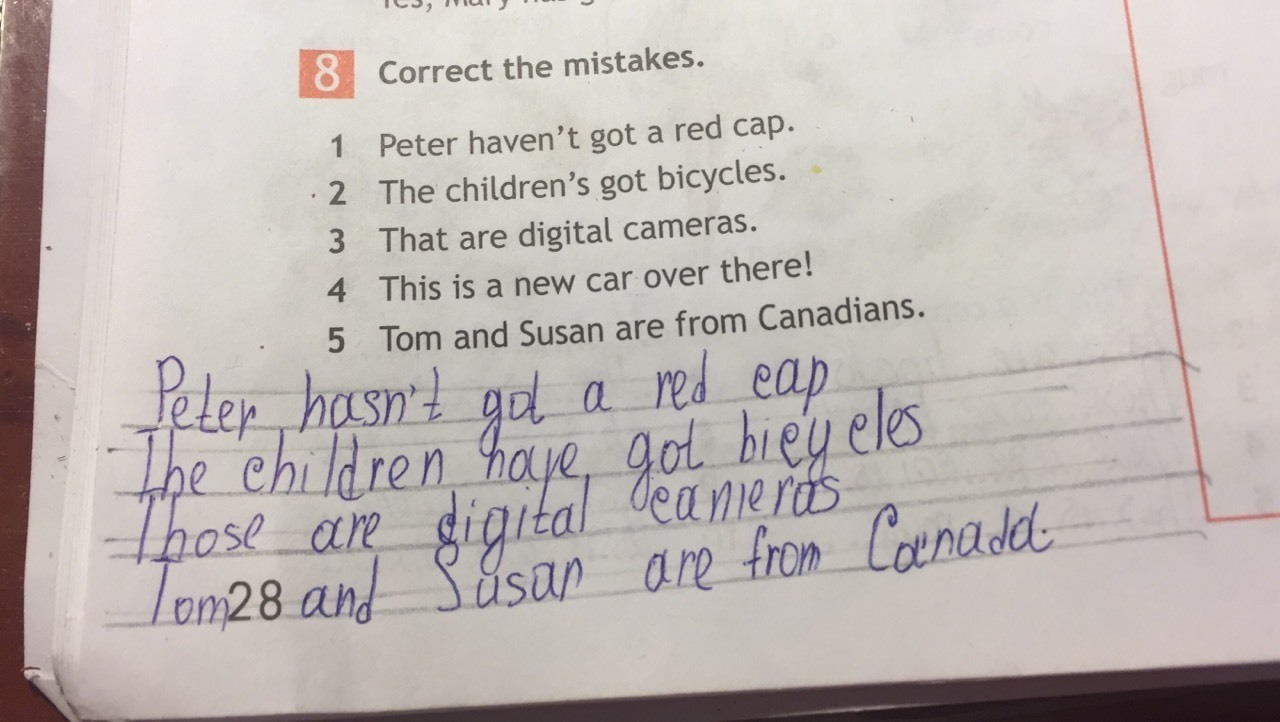 8 Correct the mistakes.
1 Peter haven't got a red cap.
2 The children's got bicycles.
3 That are digital cameras.
4 This is a new car over there!
5 Tom and Susan are from Canadians.
Peter hasn't got a red cap
The children have got bicycles
Those are digital cameras
Tom 28 and Susan are from Canada.